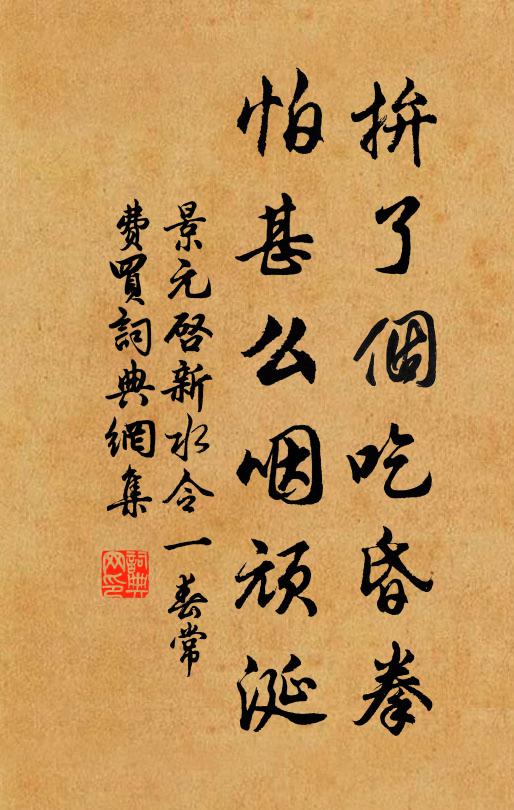 拚了個吃昏拳
怕甚么咽頑涎
景元啓新水令一春常
費買詞典網集
詞典網印